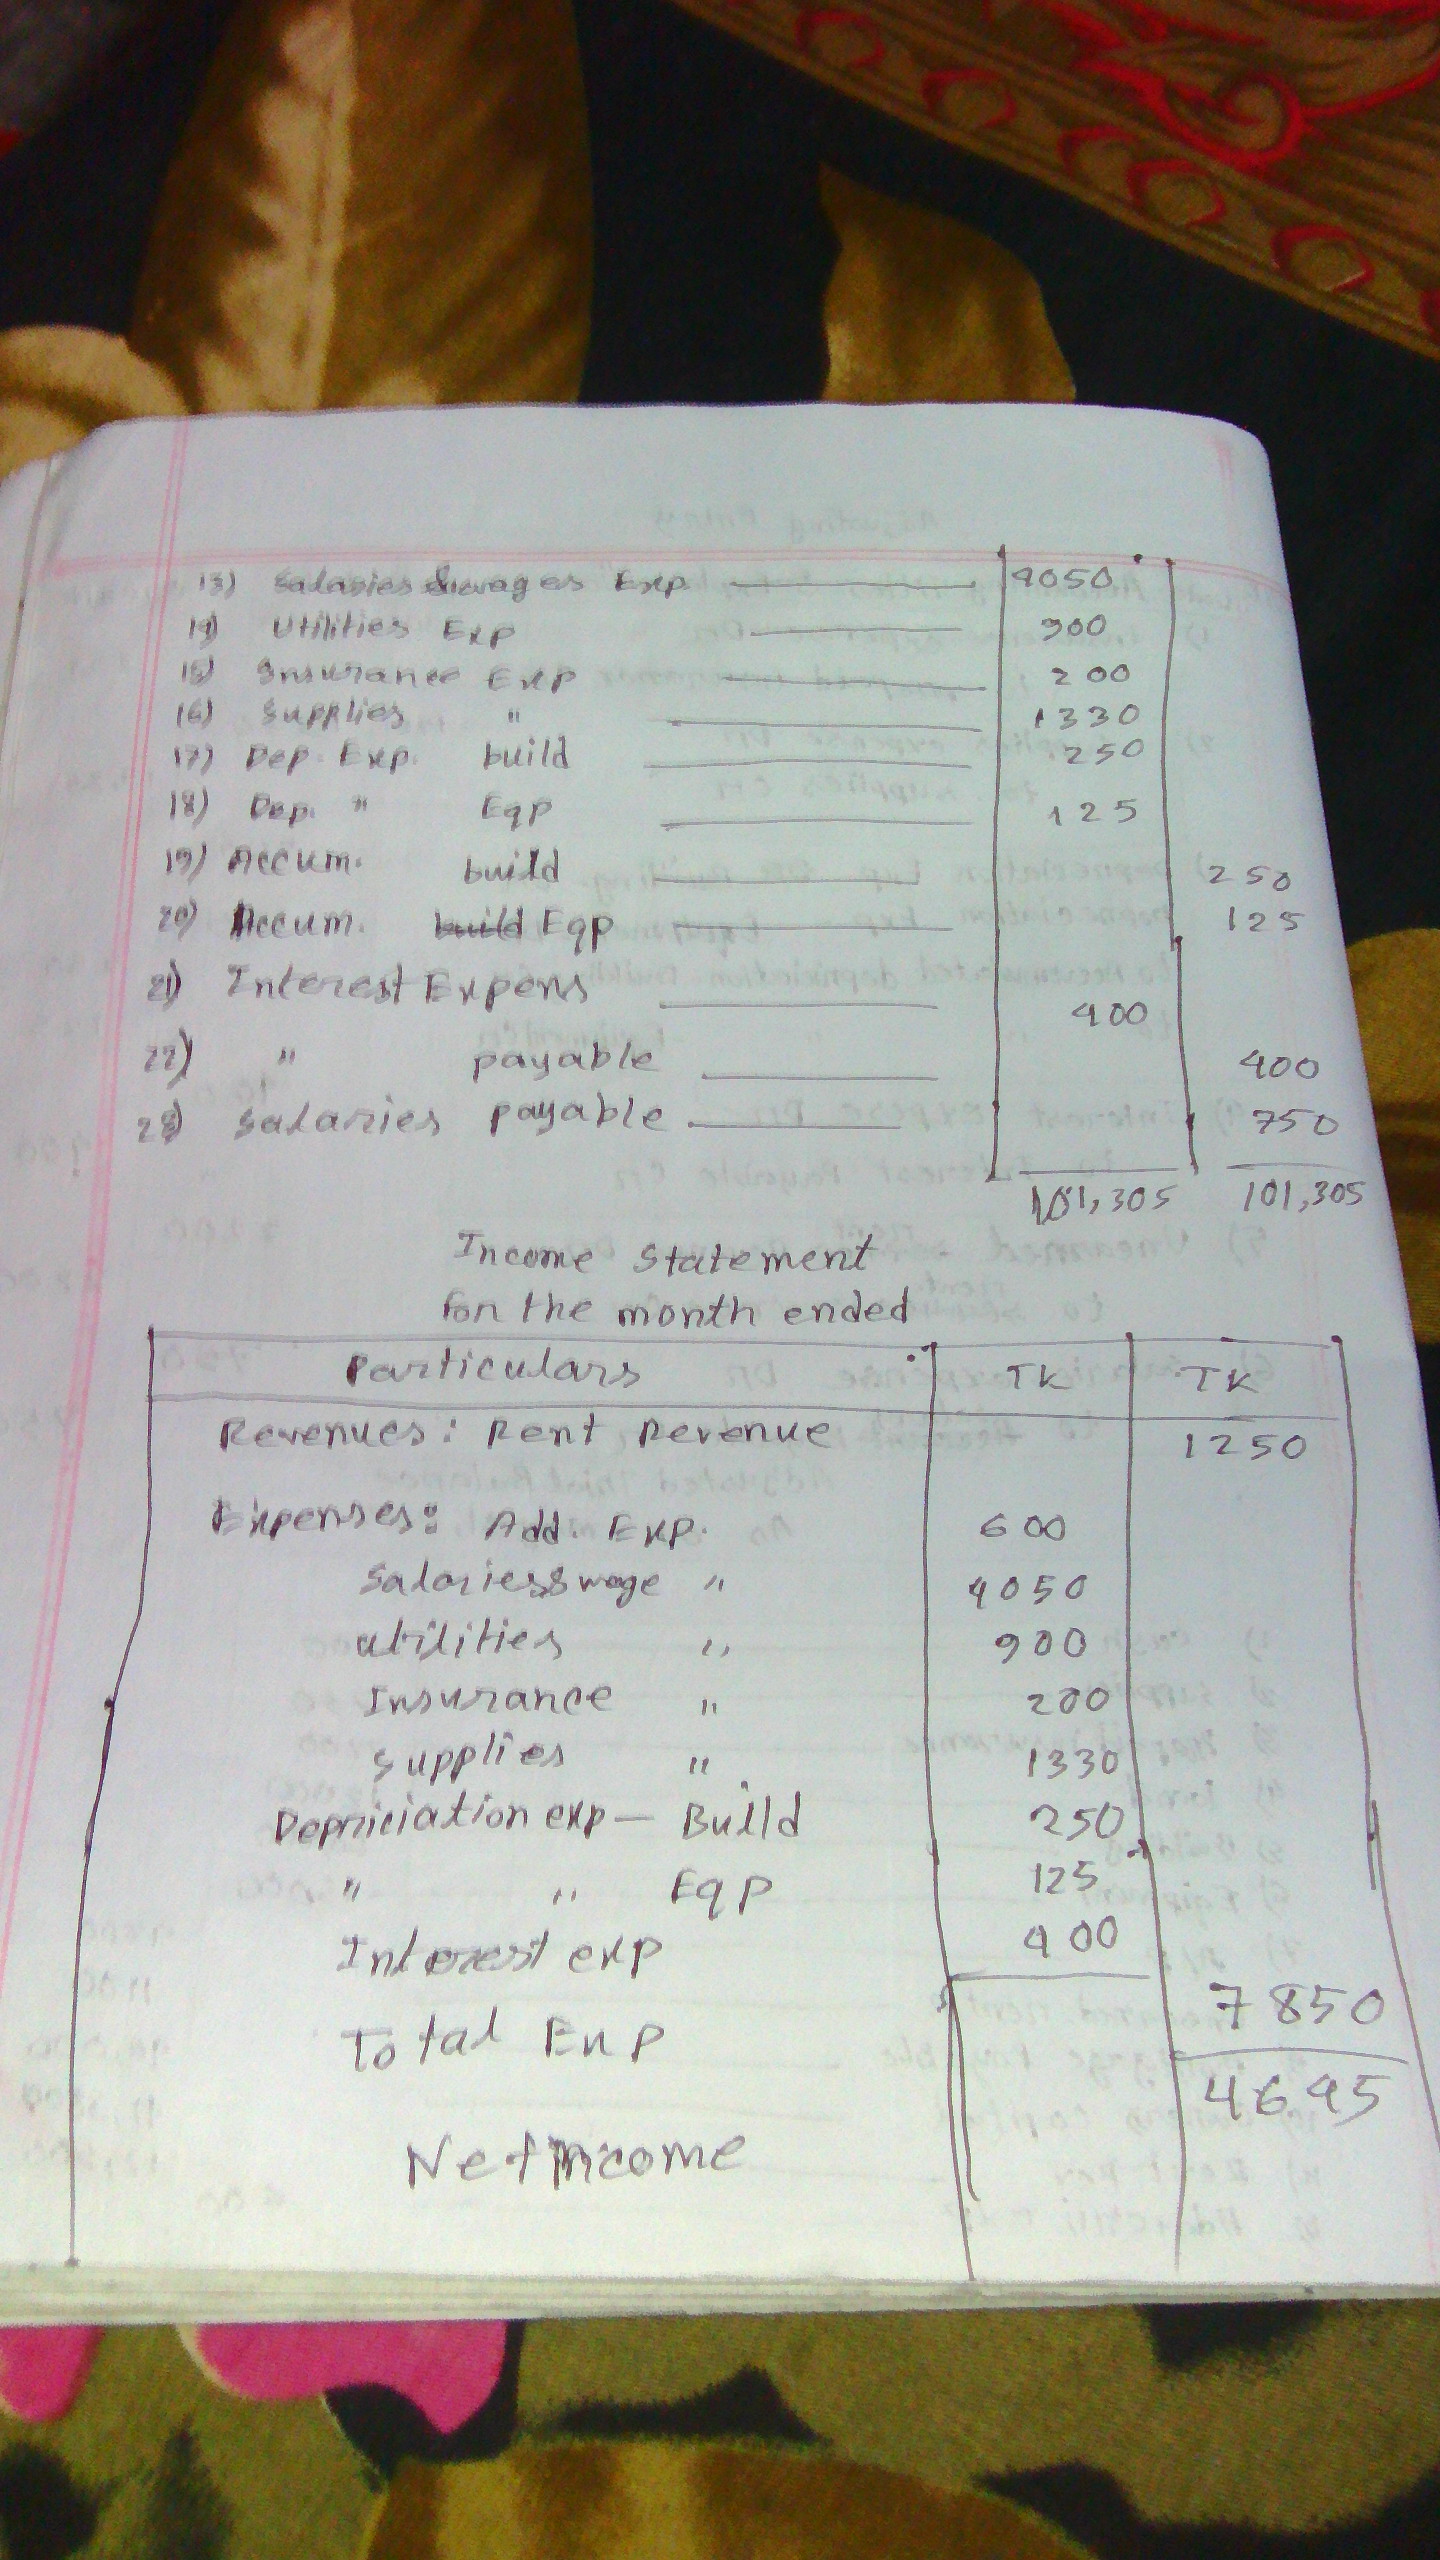 13) Salaries & wages Exp. 4050
14) Utilities Exp 900
15) Insurance Exp 200
16) Supplies " 1330
17) Dep. Exp. build 250
18) Dep. " Eqp 125
19) Accum. build 250
20) Accum. build Eqp 125
21) Interest Expens 400
22) " payable 400
23) Salaries payable 750
101,305 101,305
Income Statement
For the month ended
Particulars TK TK
Revenues: Rent Revenue 1250
Expenses: Add. Exp. 600
Salaries & wage " 4050
utilities " 900
Insurance " 200
Supplies " 1330
Depriciation exp — Build 250
" " Eqp 125
Interest exp 400
Total Exp 7850
Net income 4695